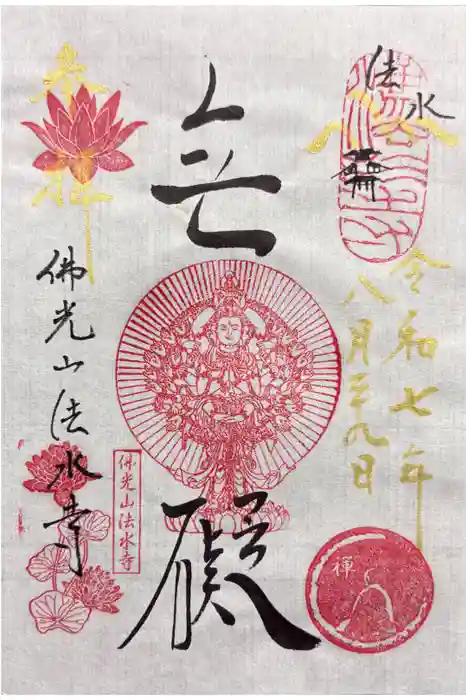 法水
令和七年
八月二十九日
無
礙
奉拝
佛光山法水寺
佛光山法水寺
禪